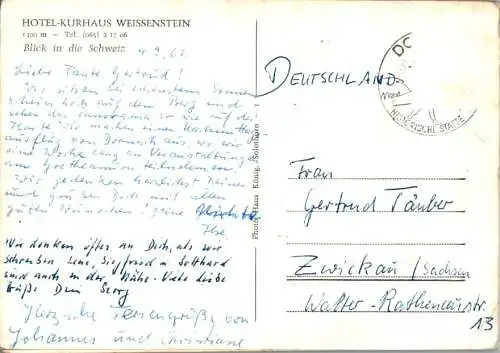 HOTEL-KURHAUS WEISSENSTEIN
1300 m – Tel. (065) 2 17 06
Blick in die Schweiz 4.9.61
Liebe Tante Gertrud!
Wir sitzen bei schönstem Sonnen
schein hoch auf dem Berg und
sehen das Panorama so wie auf der
Karte. Wir machen einen
ausflug von Dornach aus, wo wir
eine Woche lang an Veranstaltungen
am Goetheanum teilnehmen.
Wir gedenken herzlichst Deiner
und grüßen Dich mit allen
guten Wünschen! Deine
Ilse
Wir denken öfter an Dich, als wir
schreiben Lene, Siegfried u. Gotthard
sind auch in der Nähe. Viele liebe
Grüße Dein Georg
Herzliche Feriengrüße von
Johannes und Christiane
Photo Hans König, Solothurn
DO
HISTORISCHE STÄTTE
DEUTSCHLAND
Frau
Gertrud Täuber
Zwickau / Sachsen
Walter-Rathenaustr
13